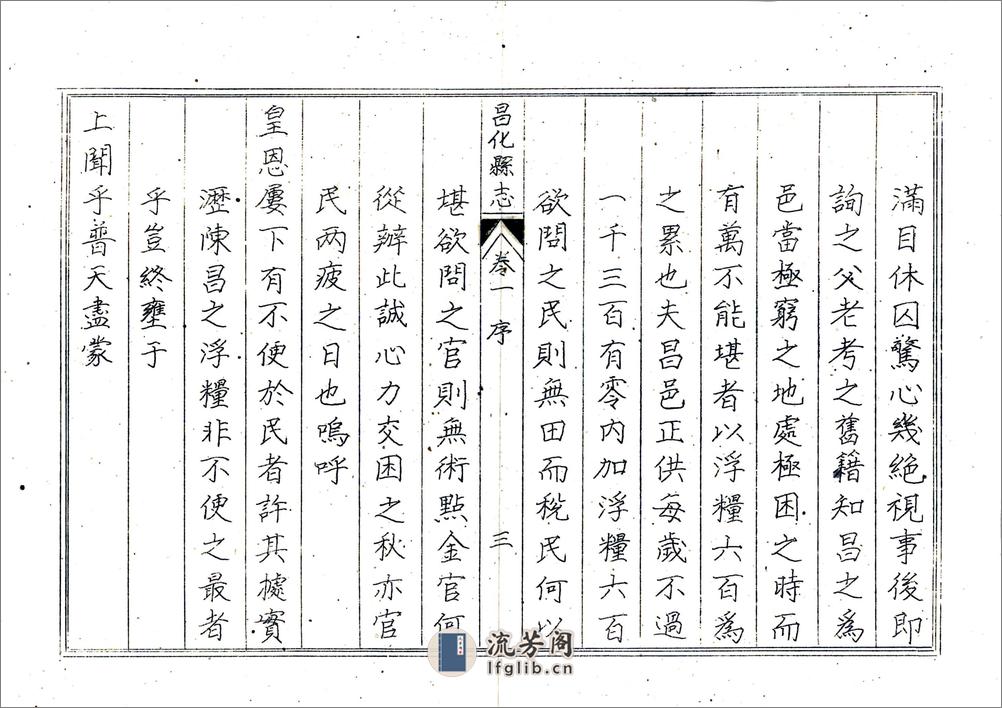 滿目休囚驚心幾絕視事後即
詢之父老考之舊籍知昌之為
邑當極窮之地處極困之時而
有萬不能堪者以浮糧六百為
之累也夫昌邑正供每歲不過
一千三百有零內加浮糧六百
欲問之民則無田而稅民何以
昌化縣志
卷一 序
三
堪欲問之官則無術點金官何
從辦此誠心力交困之秋亦官
民两疲之日也嗚呼
皇恩屢下有不便於民者許其據實
瀝陳昌之浮糧非不便之最者
乎豈終壅于
上聞乎普天盡蒙
流芳阁
lfglib.cn